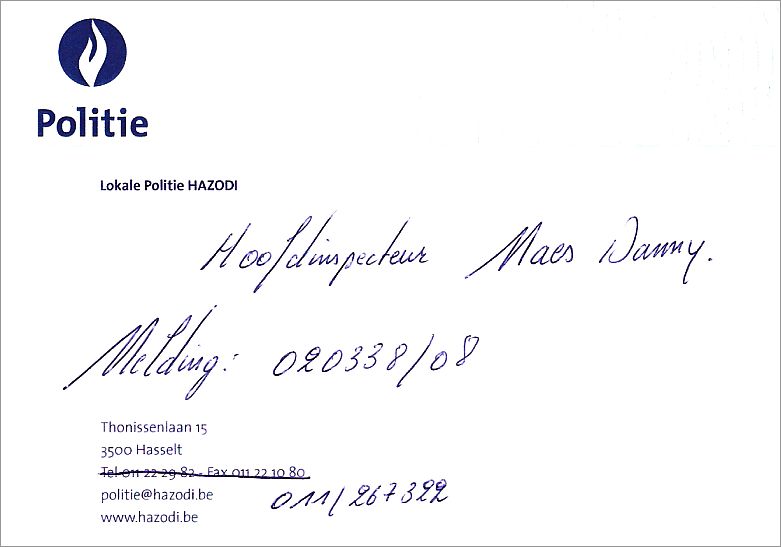 Politie
Lokale Politie HAZODI
Hoofdinspecteur Maes Danny.
Melding: 020338/08
Thonissenlaan 15
3500 Hasselt
Tel 011 22 29 82 - Fax 011 22 10 80
politie@hazodi.be
011/267322
www.hazodi.be